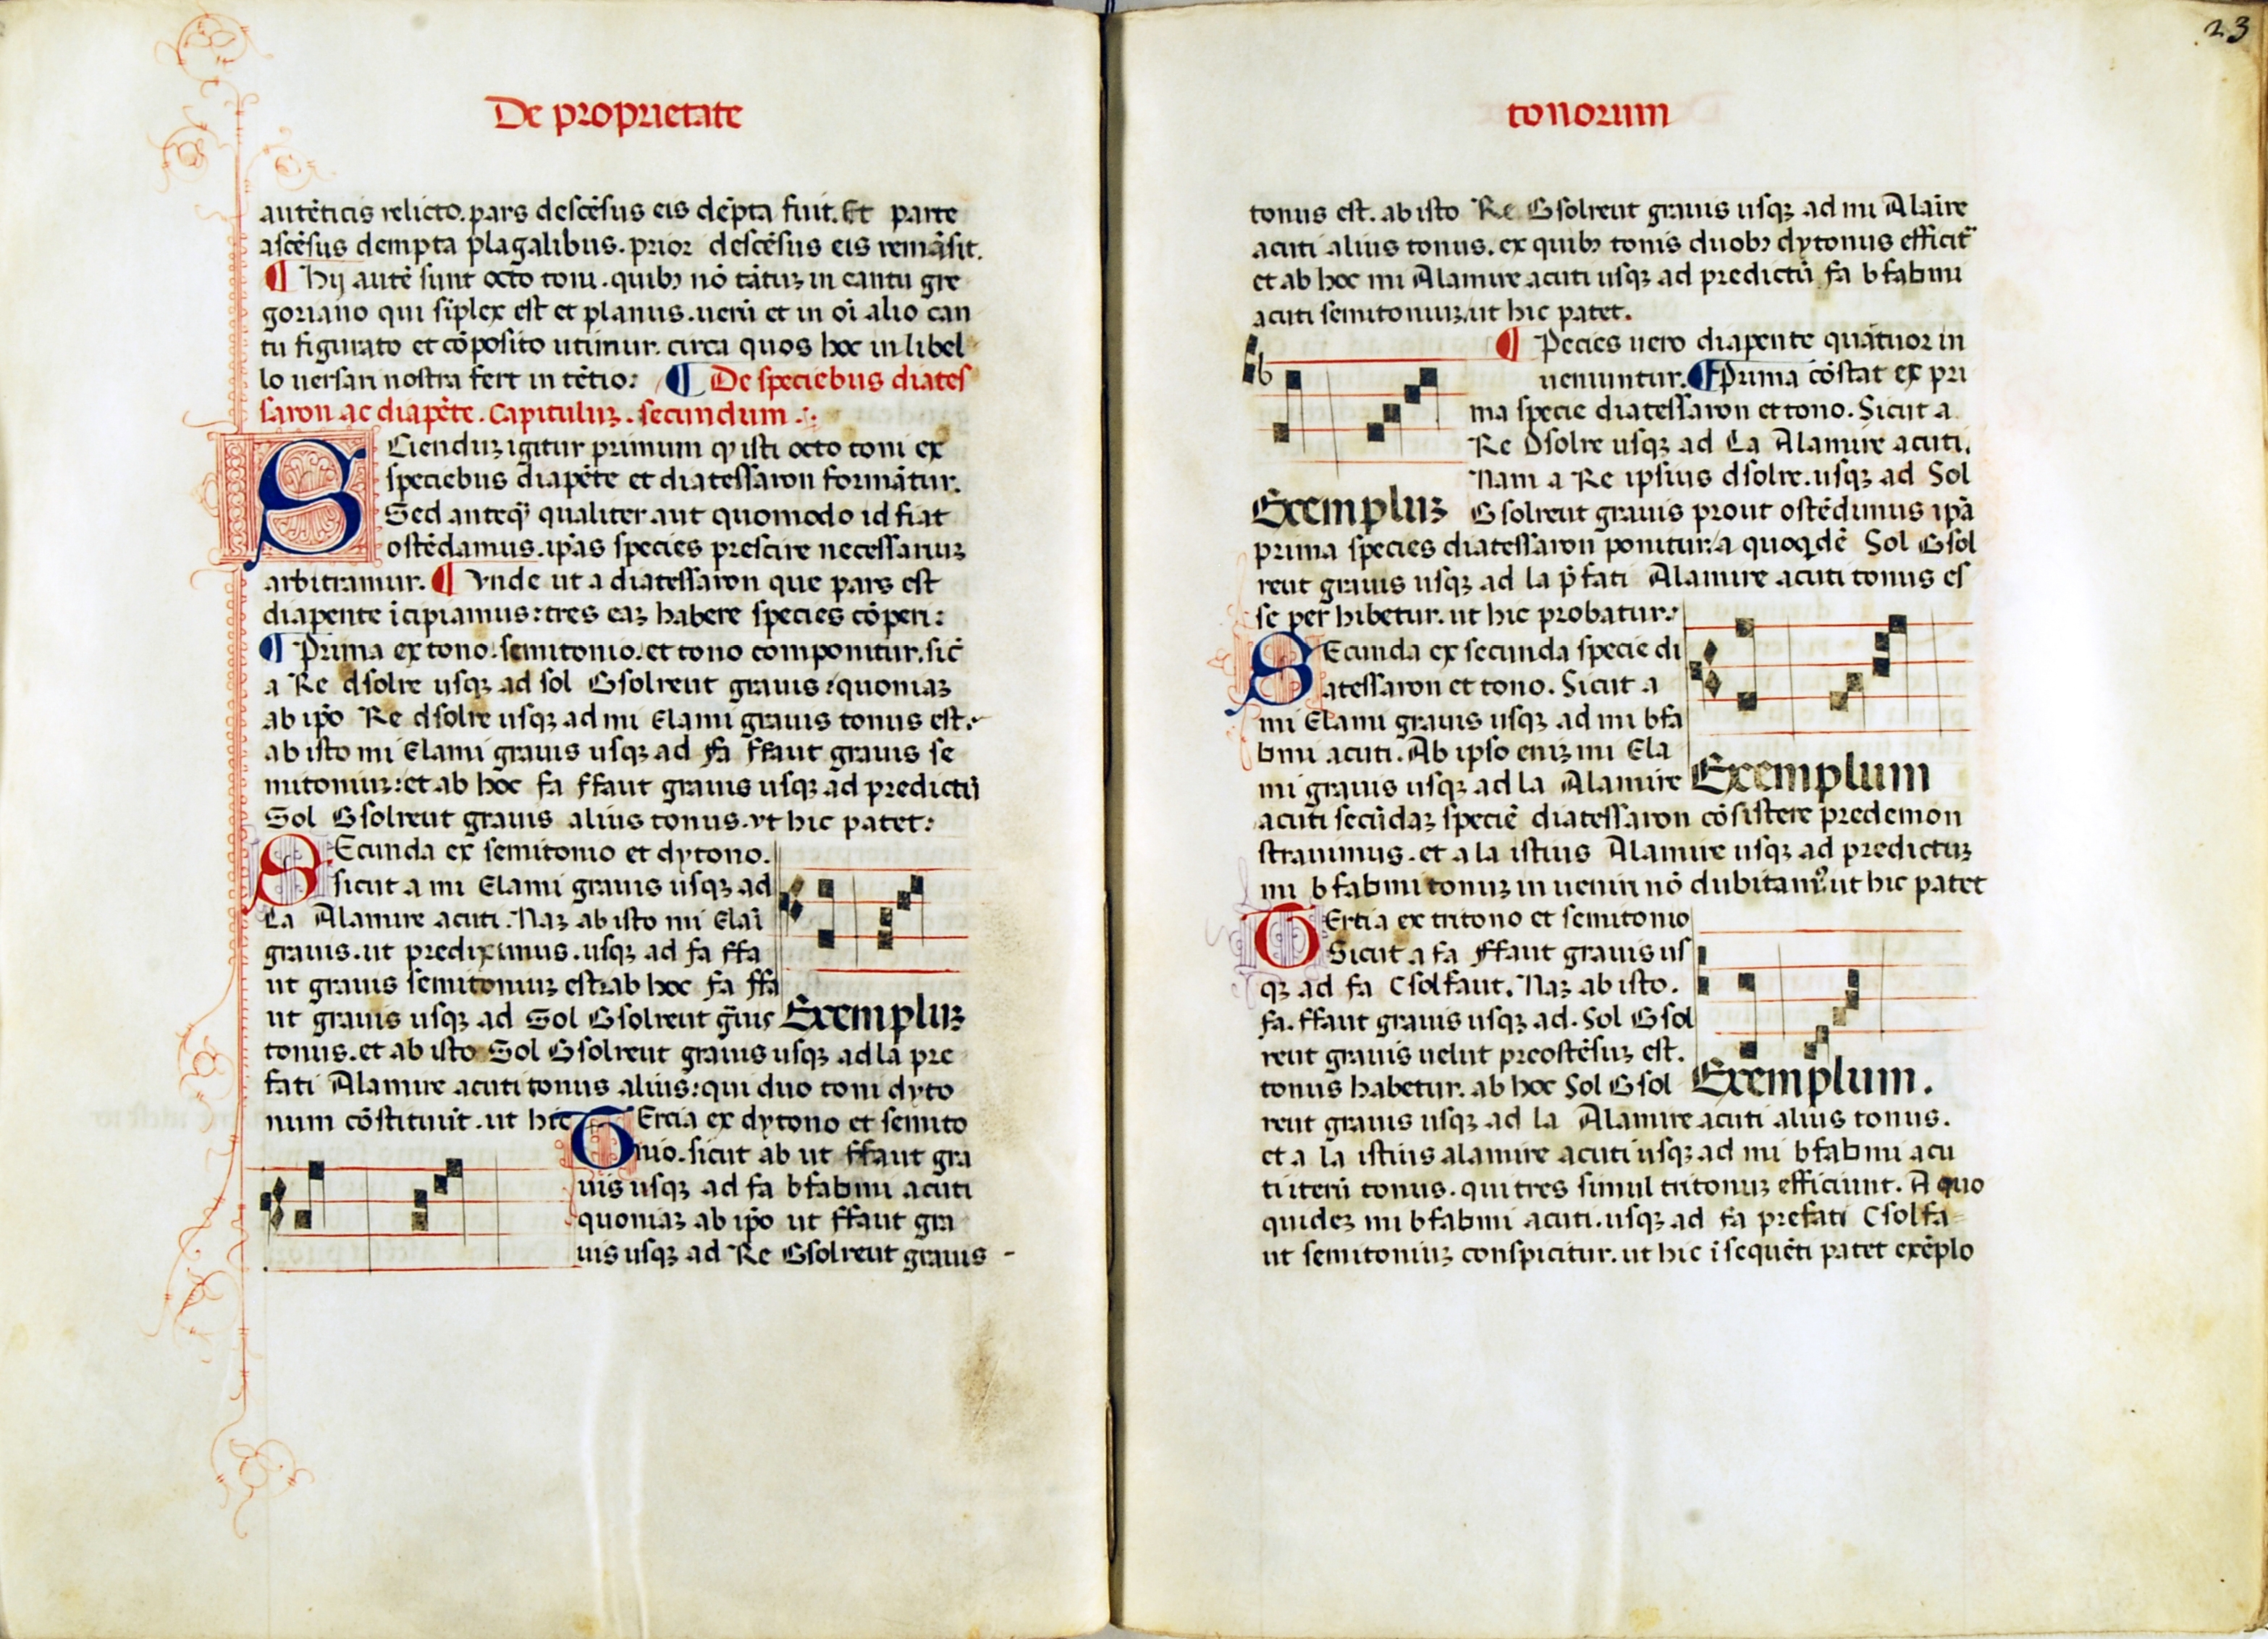 De proprietate
autẽticis relicto. pars descẽsus eis dẽpta fuit. Et parte
ascẽsus dempta plagalibus. prior descẽsus eis remãsit.
¶ Hij autẽ sunt octo toni. quibꝰ nõ tãtuꝫ in cantu gre
goriano qui sĩplex est et planus. uerũ et in oĩ alio can
tu figurato et cõposito utimur. circa quos hoc in libel
lo uersari nostra fert in tẽtio: ¶ De speciebus diates
saron ac diapẽte. Capituluꝫ. secundum.
SCienduꝫ igitur primum ꝙ isti octo toni ex
speciebus diapẽte et diatessaron formãtur.
Sed anteq̃ qualiter aut quomodo id fiat
ostẽdamus. ip̃as species prescire necessariuꝫ
arbitramur. ¶ Vnde ut a diatessaron que pars est
diapente ĩcipiamus: tres eaꝫ habere species cõperi:
¶ Prima ex tono. semitonio. et tono componitur. sic̃
a Re dsolre usqꝫ ad sol Gsolreut grauis: quoniaꝫ
ab ip̃o Re dsolre usqꝫ ad mi Elami grauis tonus est.
ab isto mi Elami grauis usqꝫ ad fa ffaut grauis se
mitoniuꝫ: et ab hoc fa ffaut grauis usqꝫ ad predictũ
Sol Gsolreut grauis alius tonus. vt hic patet:
SEcunda ex semitonio et dytono.
sicut a mi Elami grauis usqꝫ ad
La Alamire acuti. Naꝫ ab isto mi Elaĩ
grauis. ut prediximus. usqꝫ ad fa ffa
ut grauis semitoniuꝫ est: ab hoc fa ffa
ut grauis usqꝫ ad Sol Gsolreut g̃uis Exempluꝫ
tonus. et ab isto Sol Gsolreut grauis usqꝫ ad la pre
fati Alamire acuti tonus alius: qui duo toni dyto
num cõstituũt. ut hic TErcia ex dytono et semito
nio. sicut ab ut ffaut gra
uis usqꝫ ad fa bfabmi acuti
quoniaꝫ ab ip̃o ut ffaut gra
uis usqꝫ ad Re Gsolreut grauis -
23
tonorum
tonus est. ab isto Re Gsolreut grauis usqꝫ ad mi Alaĩre
acuti alius tonus. ex quibꝰ tonis duobꝰ dytonus efficit᷑
et ab hoc mi Alamire acuti usqꝫ ad predictũ fa bfabmi
acuti semitoniuꝫ. ut hic patet.
b
¶ Pecies uero diapente quãtuor in
ueniuntur. ¶ Prima cõstat ex pri
ma specie diatessaron et tono. Sicut a
Re Dsolre usqꝫ ad La Alamire acuti.
Nam a Re ipsius dsolre. usqꝫ ad Sol
Exempluꝫ Gsolreut grauis prout ostẽdimus ip̃a
prima species diatessaron ponitur: a quoqꝫdẽ Sol Gsol
reut grauis usqꝫ ad la p̃fati Alamire acuti tonus es
se per hibetur. ut hic probatur:
SEcunda ex secunda specie di
atessaron et tono. Sicut a
mi Elami grauis usqꝫ ad mi bfa
bmi acuti. Ab ipso eniꝫ mi Ela
mi grauis usqꝫ ad la Alamire Exemplum
acuti secũdaꝫ speciẽ diatessaron cõsistere predemon
strauimus. et a la istius Alamire usqꝫ ad predictuꝫ
mi bfabmi tonuꝫ in ueniri nõ dubitam᷒: ut hic patet
TErtia ex tritono et semitonio
Sicut a fa ffaut grauis us
qꝫ ad fa Csolfaut. Naꝫ ab isto.
fa. ffaut grauis usqꝫ ad. Sol Gsol
reut grauis uelut preostẽsuꝫ est.
tonus habetur. ab hoc Sol Gsol Exemplum.
reut grauis usqꝫ ad la Alamire acuti alius tonus.
et a la istius alamire acuti usqꝫ ad mi bfabmi acu
ti iterũ tonus. qui tres simul tritonuꝫ efficiunt. A quo
quideꝫ mi bfabmi acuti. usqꝫ ad fa prefati Csolfa
ut semitoniuꝫ conspicitur. ut hic ĩ sequẽti patet exẽplo